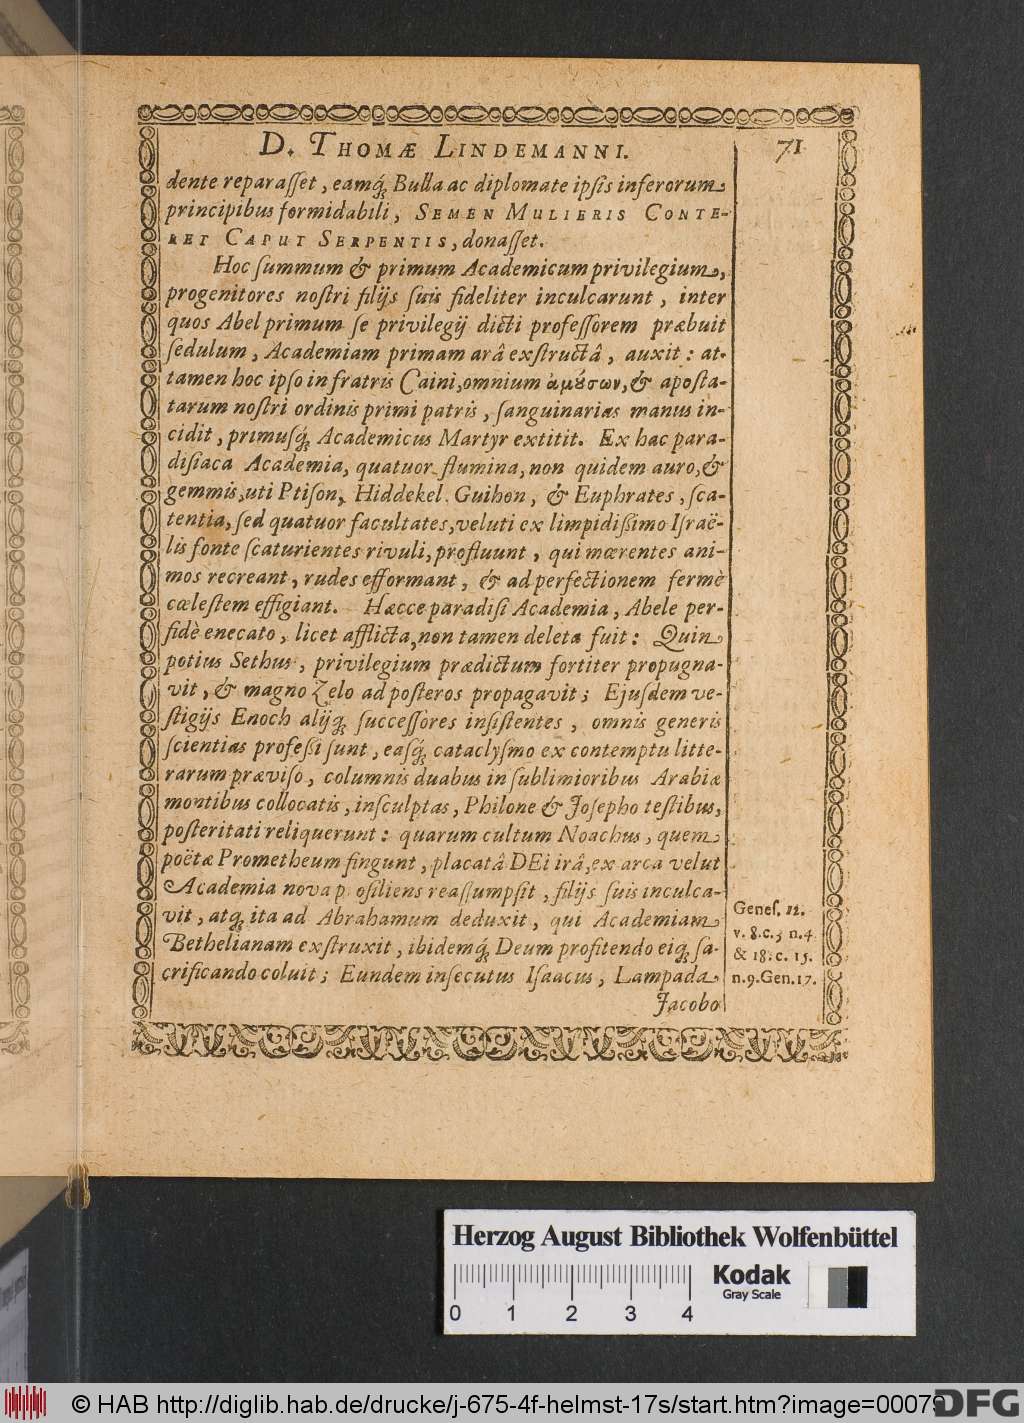 D. THOMÆ LINDEMANNI.
71
dente reparaſſet, eamq́; Bulla ac diplomate ipſis inferorum
principibus formidabili, SEMEN MULIERIS CONTE-
RET CAPUT SERPENTIS, donaſſet.
Hoc ſummum & primum Academicum privilegium,
progenitores noſtri filijs ſuis fideliter inculcarunt, inter
quos Abel primum ſe privilegij dicti profeſſorem præbuit
ſedulum, Academiam primam arâ exſtructâ, auxit: at-
tamen hoc ipſo in fratris Caini, omnium ἀμούσων, & apoſta-
tarum noſtri ordinis primi patris, ſanguinarias manus in-
cidit, primuſq́; Academicus Martyr extitit. Ex hac para-
diſiaca Academia, quatuor flumina, non quidem auro, &
gemmis, uti Ptiſon, Hiddekel, Guihon, & Euphrates, ſca-
tentia, ſed quatuor facultates, veluti ex limpidißimo Iſraë-
lis fonte ſcaturientes rivuli, profluunt, qui mœrentes ani-
mos recreant, rudes efformant, & ad perfectionem fermè
cœleſtem effigiant. Hæcce paradiſi Academia, Abele per-
fidè enecato, licet afflicta, non tamen deleta fuit: Quin
potius Sethus, privilegium prædictum fortiter propugna-
vit, & magno Zelo ad poſteros propagavit; Ejuſdem ve-
ſtigijs Enoch alijq́; ſucceſſores inſiſtentes, omnis generis
ſcientias profeßi ſunt, eaſq́; cataclyſmo ex contemptu litte-
rarum præviſo, columnis duabus in ſublimioribus Arabiæ
montibus collocatis, inſculptas, Philone & Joſepho teſtibus,
poſteritati reliquerunt: quarum cultum Noachus, quem
poëtæ Prometheum fingunt, placatâ DEi irâ, ex arca velut
Academia nova proſiliens reaſſumpſit, filijs ſuis inculca-
vit, atq́; ita ad Abrahamum deduxit, qui Academiam
Bethelianam exſtruxit, ibidemq́; Deum profitendo eiq́; ſa-
crificando coluit; Eundem inſecutus Iſaacus, Lampada
Jacobo
Geneſ. 12.
v. 8. c. 3 n. 4
& 18. c. 15.
n. 9. Gen. 17.
Herzog August Bibliothek Wolfenbüttel
Kodak
Gray Scale
0 1 2 3 4
© HAB http://diglib.hab.de/drucke/j-675-4f-helmst-17s/start.htm?image=00079
DFG